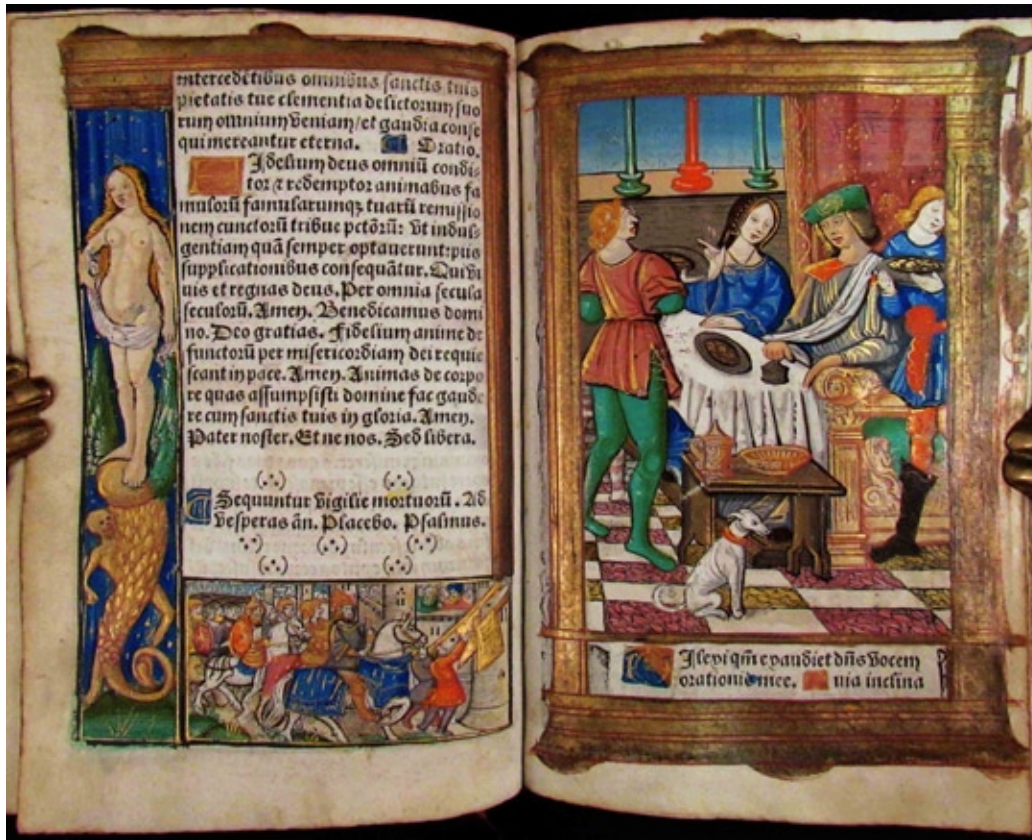 intercedẽtibus omnibus sanctis tuis
pietatis tue clementia delictorum suo
rum omnium veniam/et gaudia conse
qui mereantur eterna. Oratio.
Idelium deus omniũ condi-
tor ⁊ redemptor animabus fa
mulorũ famularumqꝫ tuarũ remissio
nem cunctorũ tribue pctõrũ: vt indul-
gentiam quã semper optauerunt: piis
supplicationibus consequãtur. Qui vi
uis et regnas deus. Per omnia secula
seculorũ. Amen. Benedicamus domi
no. Deo gratias. Fidelium anime de
functorũ per misericordiam dei requie
scant in pace. Amen. Animas de corpo
re quas assumpsisti domine fac gaude
re cum sanctis tuis in gloria. Amen.
Pater noster. Et ne nos. Sed libera.
Sequuntur vigilie mortuorũ. Ad
vesperas añ. Placebo. Psalmus.
Ilexi qm̃ exaudiet dñs vocem
orationis mee. uia inclina